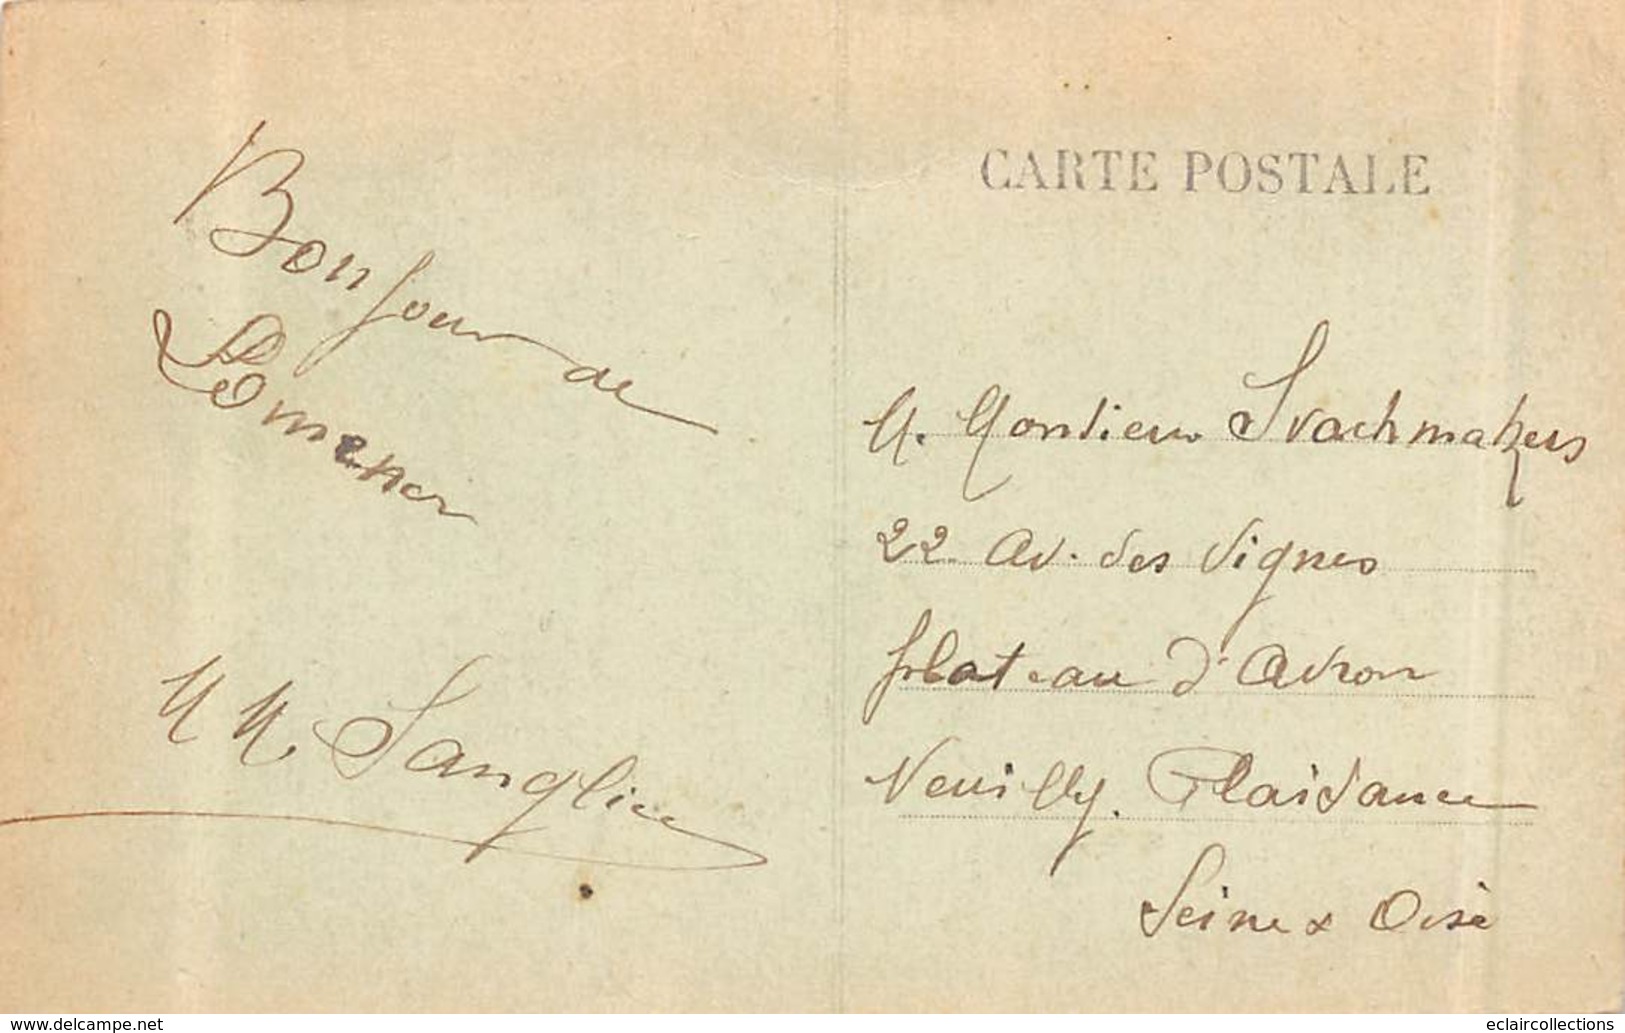 Bonjour de
Lomener
M M. Sanglier
CARTE POSTALE
M. Monsieur Strachmakers
22 Av. des Vignes
plateau d'Avron
Neuilly. Plaisance
Seine & Oise
www.delcampe.net
eclaircollections